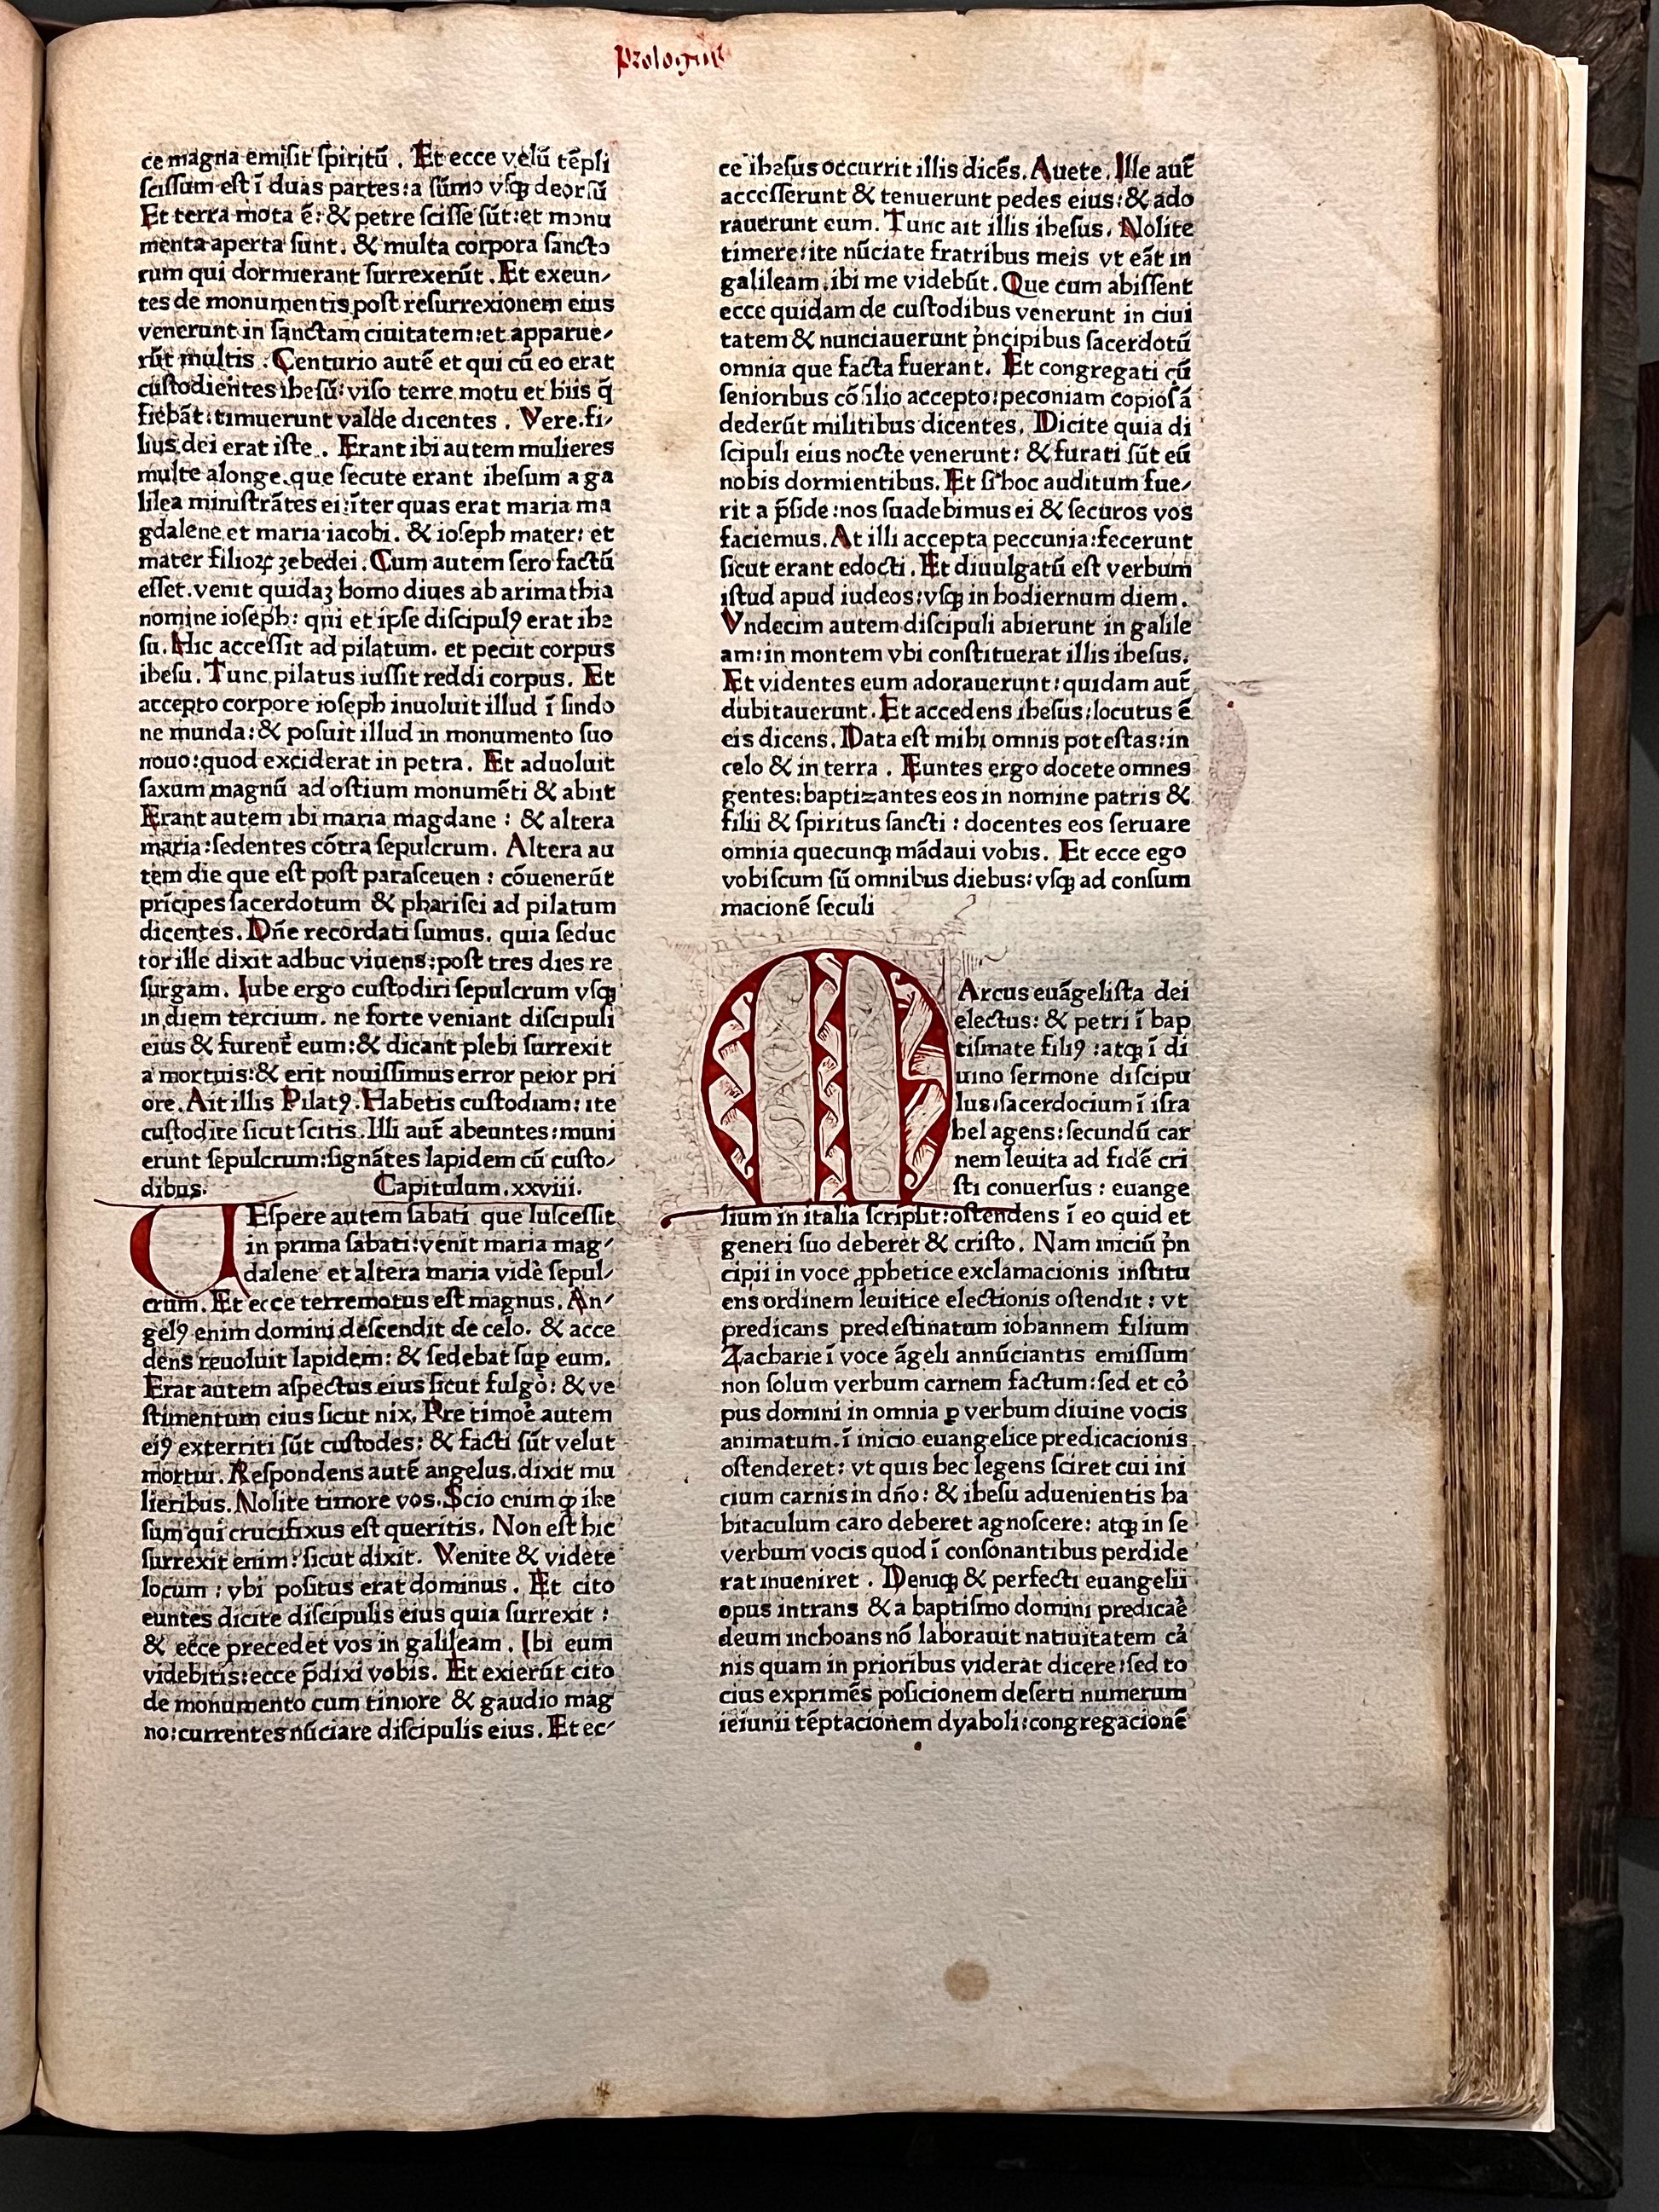 Prologus
ce magna emisit spiritū . Et ecce velū tēpli
scissum est ī duas partes: a sūmo vsqꝫ deorsū
Et terra mota ē: & petre scisse sūt: et monu
menta aperta sunt. & multa corpora sancto
rum qui dormierant surrexerūt . Et exeun⸗
tes de monumentis post resurrexionem eius
venerunt in sanctam ciuitatem: et apparue⸗
rūt multis : Centurio autē et qui cū eo erat
custodientes ihesū: viso terre motu et hiis q̄
fiebāt: timuerunt valde dicentes . Vere. fi⸗
lius dei erat iste . Erant ibi autem mulieres
multe alonge. que secute erant ihesum a ga
lilea ministrātes ei: īter quas erat maria ma
gdalene et maria iacobi. & ioseph mater: et
mater filioꝝ zebedei . Cum autem sero factū
esset. venit quidaꝫ homo diues ab arimathia
nomine ioseph: qui et ipse discipulꝰ erat ihe
su. Hic accessit ad pilatum. et peciit corpus
ihesu. Tunc pilatus iussit reddi corpus. Et
accepto corpore ioseph inuoluit illud ī sindo
ne munda: & posuit illud in monumento suo
nouo: quod exciderat in petra . Et aduoluit
saxum magnū ad ostium monumēti & abiit
Erant autem ibi maria magdane : & altera
maria: sedentes cōtra sepulcrum. Altera au
tem die que est post parasceuen : cōuenerūt
prīcipes sacerdotum & pharisei ad pilatum
dicentes. Dn̄e recordati sumus. quia seduc
tor ille dixit adhuc viuens: post tres dies re
surgam. Iube ergo custodiri sepulcrum vsqꝫ
in diem tercium. ne forte veniant discipuli
eius & furent̄ eum: & dicant plebi surrexit
a mortuis: & erit nouissimus error peior pri
ore. Ait illis Pilatꝰ. Habetis custodiam: ite
custodite sicut scitis. Illi aut̄ abeuntes: muni
erunt sepulcrum: signātes lapidem cū custo⸗
dibus. Capitulum. xxviii.
VEspere autem sabati que luscessit
in prima sabati: venit maria mag⸗
dalene et altera maria videˀ sepul⸗
crum. Et ecce terremotus est magnus. An⸗
gelꝰ enim domini descendit de celo. & acce
dens reuoluit lapidem: & sedebat suꝑ eum.
Erat autem aspectus eius sicut fulgoˀ: & ve
stimentum eius sicut nix. Pre timoē autem
eiꝰ exterriti sūt custodes: & facti sūt velut
mortui. Respondens autē angelus. dixit mu
lieribus. Nolite timore vos. Scio enim ꝙ ihe
sum qui crucifixus est queritis. Non est hic
surrexit enim: sicut dixit. Venite & videte
locum : vbi positus erat dominus . Et cito
euntes dicite discipulis eius quia surrexit :
& ecce precedet vos in galileam . Ibi eum
videbitis: ecce p̄dixi vobis. Et exierūt cito
de monumento cum timore & gaudio mag
no: currentes nūciare discipulis eius. Et ec⸗
ce ihesus occurrit illis dicēs. Auete. Ille aut̄
accesserunt & tenuerunt pedes eius: & ado
rauerunt eum. Tunc ait illis ihesus. Nolite
timere: ite nūciate fratribus meis vt eāt in
galileam. ibi me videbūt. Que cum abissent
ecce quidam de custodibus venerunt in ciui
tatem & nunciauerunt pˀncipibus sacerdotū
omnia que facta fuerant. Et congregati cū
senioribus cōsilio accepto: peconiam copiosā
dederūt militibus dicentes. Dicite quia di
scipuli eius nocte venerunt: & furati sūt eū
nobis dormientibus. Et si hoc auditum fue⸗
rit a p̄side: nos suadebimus ei & securos vos
faciemus. At illi accepta peccunia: fecerunt
sicut erant edocti. Et diuulgatū est verbum
istud apud iudeos: vsqꝫ in hodiernum diem.
Vndecim autem discipuli abierunt in galile
am: in montem vbi constituerat illis ihesus.
Et videntes eum adorauerunt: quidam aut̄
dubitauerunt. Et accedens ihesus: locutus ē
eis dicens. Data est mihi omnis potestas: in
celo & in terra . Euntes ergo docete omnes
gentes: baptizantes eos in nomine patris &
filii & spiritus sancti : docentes eos seruare
omnia quecunqꝫ mādaui vobis. Et ecce ego
vobiscum sū omnibus diebus: vsqꝫ ad consum
macionē seculi
MArcus euāgelista dei
electus: & petri ī bap
tismate filiꝰ : atqꝫ ī di
uino sermone discipu
lus: sacerdocium ī isra
hel agens: secundū car
nem leuita ad fidē cri
sti conuersus : euange
lium in italia scripsit: ostendens ī eo quid et
generi suo deberet & cristo. Nam iniciū pˀn
cipii in voce ꝓphetice exclamacionis institu
ens ordinem leuitice electionis ostendit : vt
predicans predestinatum iohannem filium
Zacharie ī voce āgeli annūciantis emissum
non solum verbum carnem factum: sed et coˀ
pus domini in omnia ꝑ verbum diuine vocis
animatum. ī inicio euangelice predicacionis
ostenderet: vt quis hec legens sciret cui ini
cium carnis in dn̄o: & ihesu aduenientis ha
bitaculum caro deberet agnoscere: atqꝫ in se
verbum vocis quod ī consonantibus perdide
rat inueniret . Deniqꝫ & perfecti euangelii
opus intrans & a baptismo domini predicaē
deum inchoans nō laborauit natiuitatem caˀ
nis quam in prioribus viderat dicere: sed to
cius exprimēs posicionem deserti numerum
ieiunii tēptacionem dyaboli: congregacionē